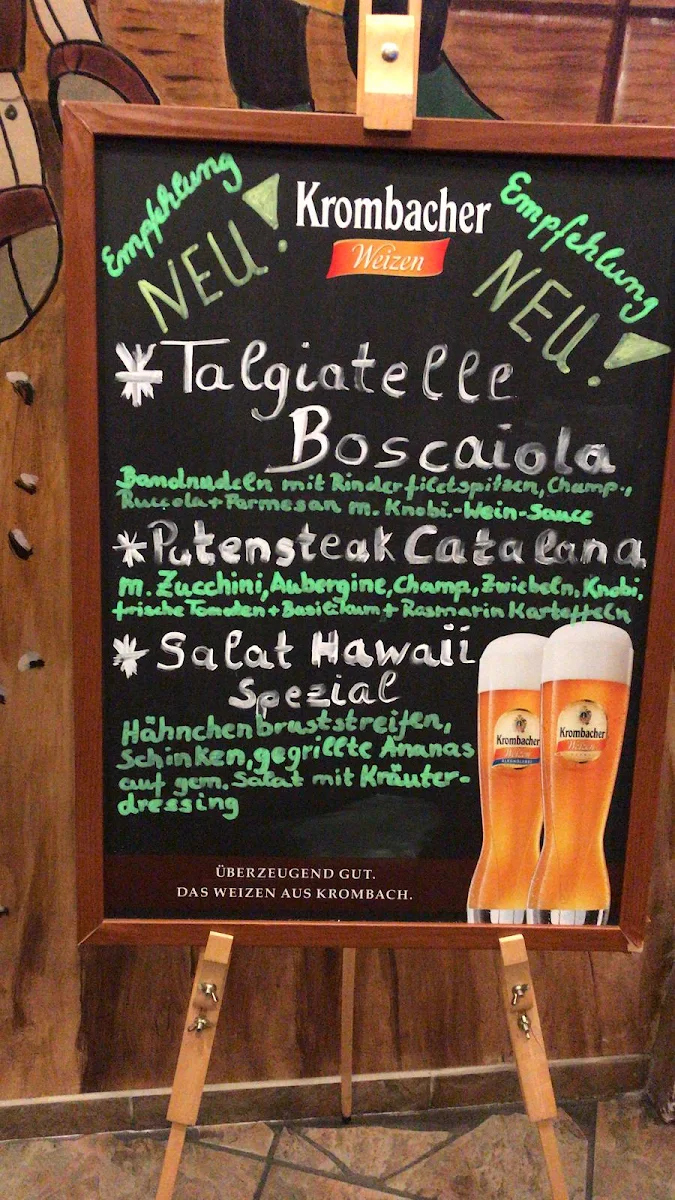 Empfehlung
NEU!
Krombacher
Weizen
Empfehlung
NEU!
*Talgiatelle
Boscaiola
Bandnudeln mit Rinderfiletspitzen, Champ.,
Ruccola + Parmesan m. Knobi.-Wein-Sauce
*Putensteak Catalana
m. Zucchini, Aubergine, Champ, Zwiebeln, Knobi,
frische Tomaten + Basilikum + Rasmarin Kartoffeln
* Salat Hawaii
Spezial
Hähnchenbruststreifen,
Schinken, gegrillte Ananas
auf gem. Salat mit Kräuter-
dressing
Krombacher
Weizen
ALKOHOLFREI
Krombacher
Weizen
ÜBERZEUGEND GUT.
DAS WEIZEN AUS KROMBACH.